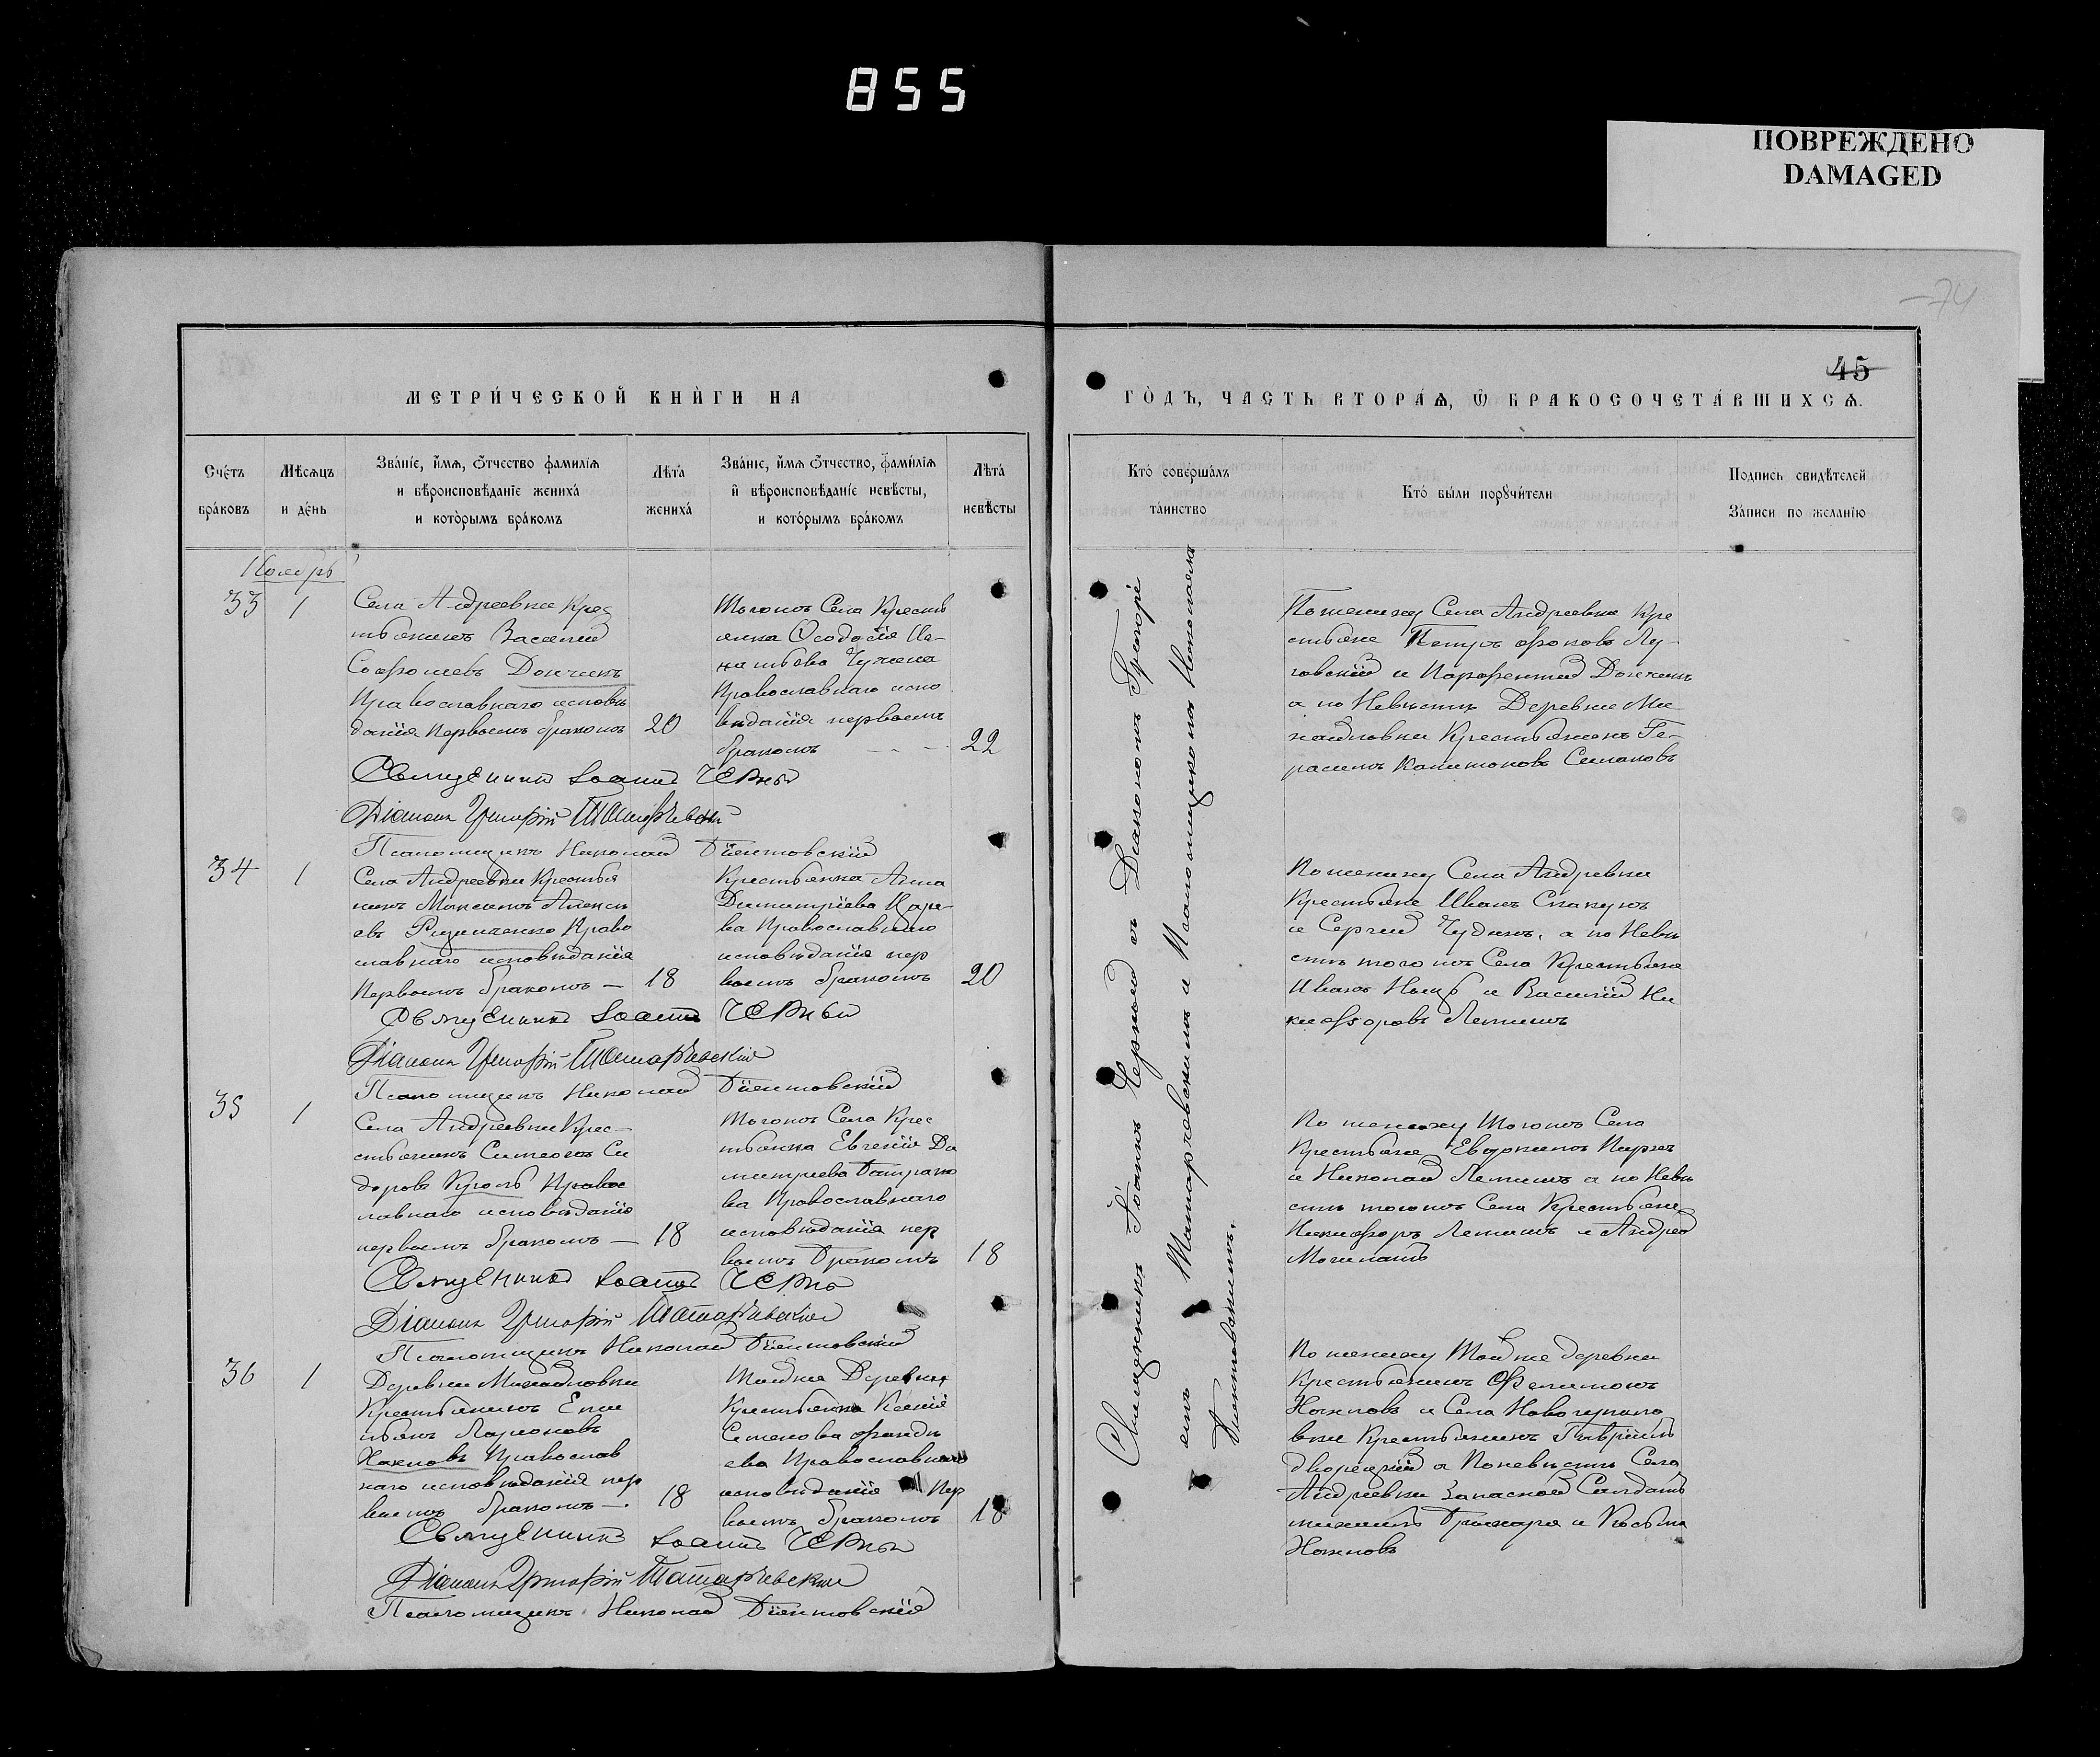 855
ПОВРЕЖДЕНО
DAMAGED
74
45
МЕТРИ́ЧЕСКОЙ КНИ́ГИ НА
ГО́ДЪ, ЧАСТЬ ВТОРА́Ѧ, Ѽ БРАКОСОЧЕТА́ВШИХСѦ.
Сче́тъ бра́ковъ
Мѣ́сѧцъ и де́нь
Зва́нїе, и҆́мѧ, ѻ҆́тчество фамилїѧ и вѣроисповѣ́данїе жениха́ и кото́рымъ бра́комъ
Лѣта̀ жениха́
Зва́нїе, и҆́мѧ ѻ҆́тчество, фами́лїѧ и҆ вѣроисповѣ́данїе невѣ́сты, и кото́рымъ бра́комъ
Лѣта́ невѣ́сты
Кто́ соверша́лъ та́инство
Кто́ бы́ли порꙋчи́тели
Подпись свидѣ́телей За́писи по жела́нїю
Ноябрь
33
1
Села Андреевки Крес
тьянинъ Василий
Софрониевъ Дончикъ
Православнаго исповѣ
данія Первымъ бракомъ
20
Тогожъ Села Кресть
янка Ѳеодосія Иг
натьева Чужина
Православнаго испо
вѣданія первымъ
бракомъ - - -
22
Священникъ Іоаннъ Черный
Діаконъ Григорій Татарчевскій
Псаломщикъ Николай Бѣнтовскій
34
1
Села Андреевки Крестья
нинъ Максимъ Алексѣ
евъ Право
славнаго исповѣданія
Первымъ бракомъ —
18
Крестьянка Анна
Димитріева
ва Православнаго
исповѣданія пер
вымъ бракомъ
20
Священникъ Іоаннъ Черный
Діаконъ Григорій Татарчевскій
Псаломщикъ Николай Бѣнтовскій
35
1
Села Андреевки Крес-
стьянинъ Симеонъ Си
доровъ Кроль Правос
лавнаго исповѣданія
первымъ бракомъ —
18
Тогожъ Села Крес
тьянка Евгенія Ди
митриева Батрако
ва Православнаго
исповѣданія пер
вымъ Бракомъ
18
Священникъ Іоаннъ Черный
Діаконъ Григорій Татарчевскій
Псаломщикъ Николай Бѣнтовскій
36
1
Деревни Михайловки
Крестьянинъ Еми
льянъ Ларионовъ
Православ
наго исповѣданія пер
вымъ бракомъ —.
18
Тойже Деревни
Крестьянка Ксенія
Семенова
ева Православнаго
исповѣданія пер
вымъ бракомъ
18
Священникъ Іоаннъ Черный
Діаконъ Григорій Татарчевскій
Псаломщикъ Николай Бѣнтовскій
Священникъ Іоаннъ Черный съ Діакономъ Григорі
емъ Татарчевскимъ и Псаломщикомъ Николаемъ
Бѣнтовскимъ.
По жениху Села Андреевки Кре
стьяне Петръ Лу
говскій и Парфентий Дончикъ
а по Невѣстѣ Деревни Ми
хайловки Крестьянинъ Ге-
расимъ Капитоновъ Симаковъ
По жениху Села Андревки
Крестьяне Иванъ Скакунъ
и Сергий Чудинъ, а по Невѣ
стѣ тогожъ Села Крестьяне
Иванъ и Василій Ни
кифоровъ Летишъ
По жениху Тогожъ Села
Крестьяне Евдокимъ
и Николай Летишъ а по Невѣ
стѣ тогожъ Села Крестьяне
Никифоръ Летишъ и Андрей
По жениху Тойже деревни
Крестьянинъ Филимонъ
и Села
Крестьянинъ Гавріилъ
Дворецкий а Поневѣстѣ Села
Андревки Запасной Солдатъ
и Косьма